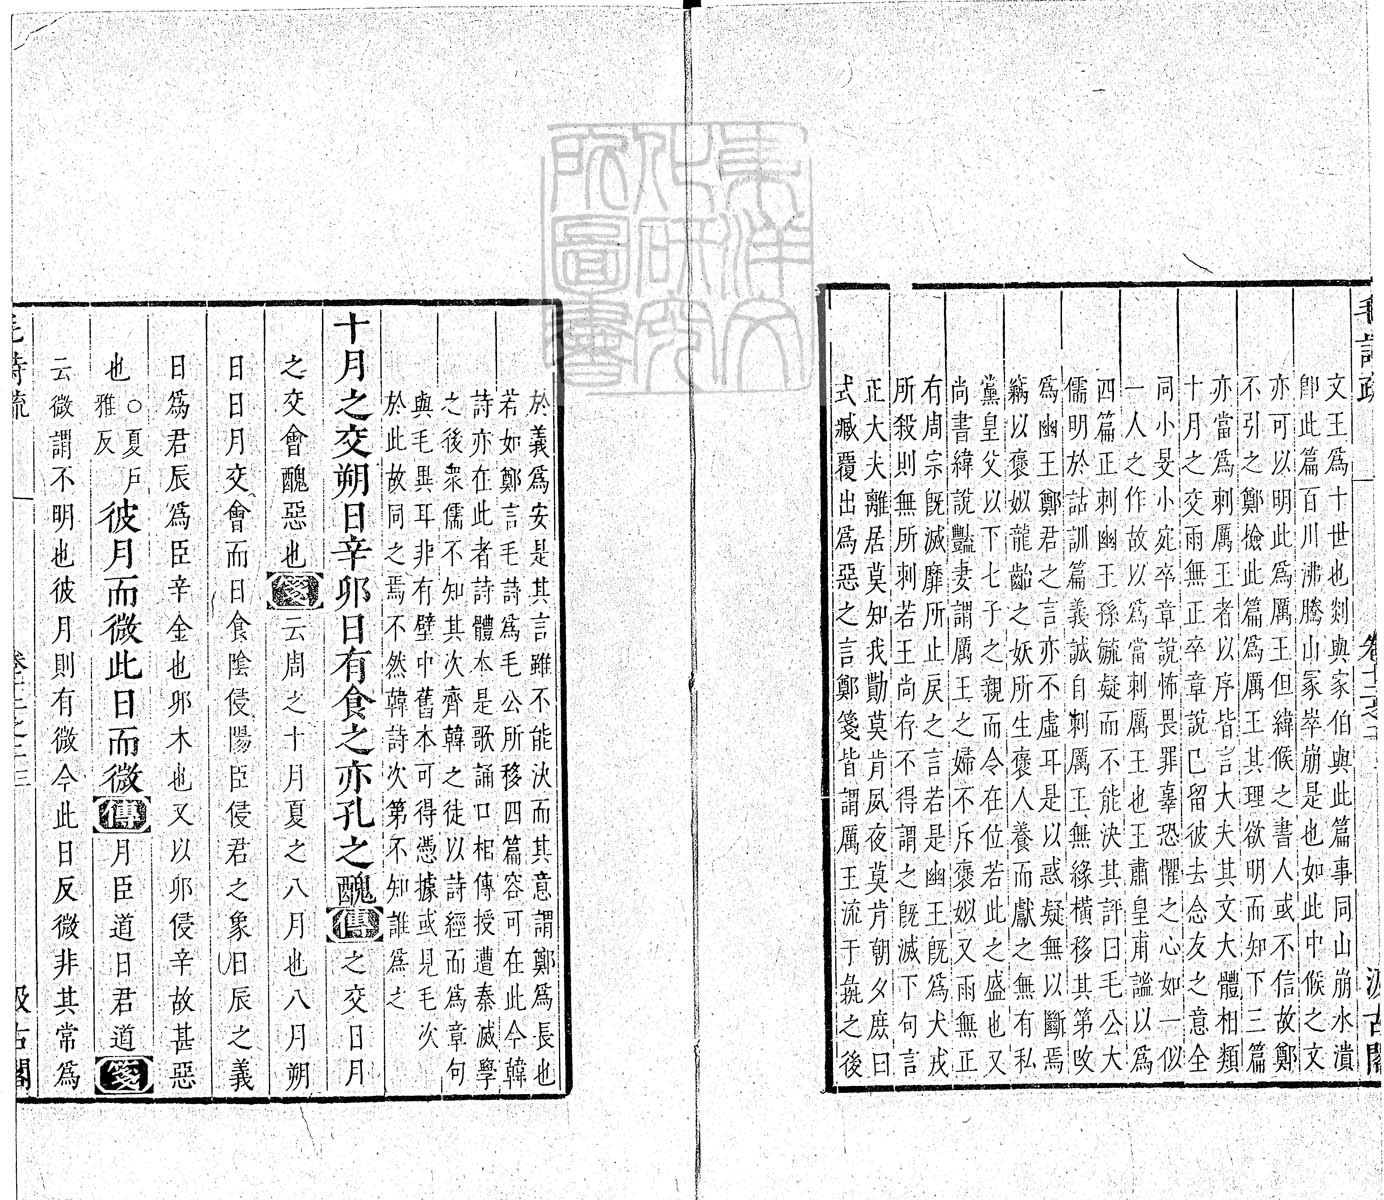 毛詩疏　卷十二之二　汲古閣
文王爲十世也剡與家伯與此篇事同山崩水潰
卽此篇百川沸騰山冢崒崩是也如此中候之文
亦可以明此爲厲王但緯候之書人或不信故鄭
不引之鄭撿此篇爲厲王其理欲明而知下三篇
亦當爲刺厲王者以序皆言大夫其文大體相類
十月之交雨無正卒章說已留彼去念友之意全
同小旻小宛卒章說怖畏罪辜恐懼之心如一似
一人之作故以爲當刺厲王也王肅皇甫謐以爲
四篇正刺幽王孫毓疑而不能決其評曰毛公大
儒明於詁訓篇義誠自刺厲王無緣橫移其第改
爲幽王鄭君之言亦不虛耳是以惑疑無以斷焉
竊以褒姒龍齝之妖所生褒人養而獻之無有私
黨皇父以下七子之親而令在位若此之盛也又
尚書緯說豔妻謂厲王之婦不斥褒姒又雨無正
有周宗旣滅靡所止戾之言若是幽王旣爲犬戎
所殺則無所刺若王尚存不得謂之旣滅下句言
正大夫離居莫知我勩莫肯夙夜莫肯朝夕庶曰
式臧覆出爲惡之言鄭箋皆謂厲王流于彘之後
於義爲安是其言雖不能決而其意謂鄭爲長也
若如鄭言毛詩爲毛公所移四篇容可在此今韓
詩亦在此者詩體本是歌誦口相傳授遭秦滅學
之後衆儒不知其次齊韓之徒以詩經而爲章句
與毛異耳非有壁中舊本可得憑據或見毛次
於此故同之焉不然韓詩次第不知誰爲之
十月之交朔日辛卯日有食之亦孔之醜傳之交日月
之交會醜惡也箋云周之十月夏之八月也八月朔
日日月交會而日食陰侵陽臣侵君之象日辰之義
日爲君辰爲臣辛金也卯木也又以卯侵辛故甚惡
也○夏戶雅反彼月而微此日而微傳月臣道日君道箋
云微謂不明也彼月則有微今此日反微非其常爲
毛詩疏　汲古閣
東洋文化研究所圖書